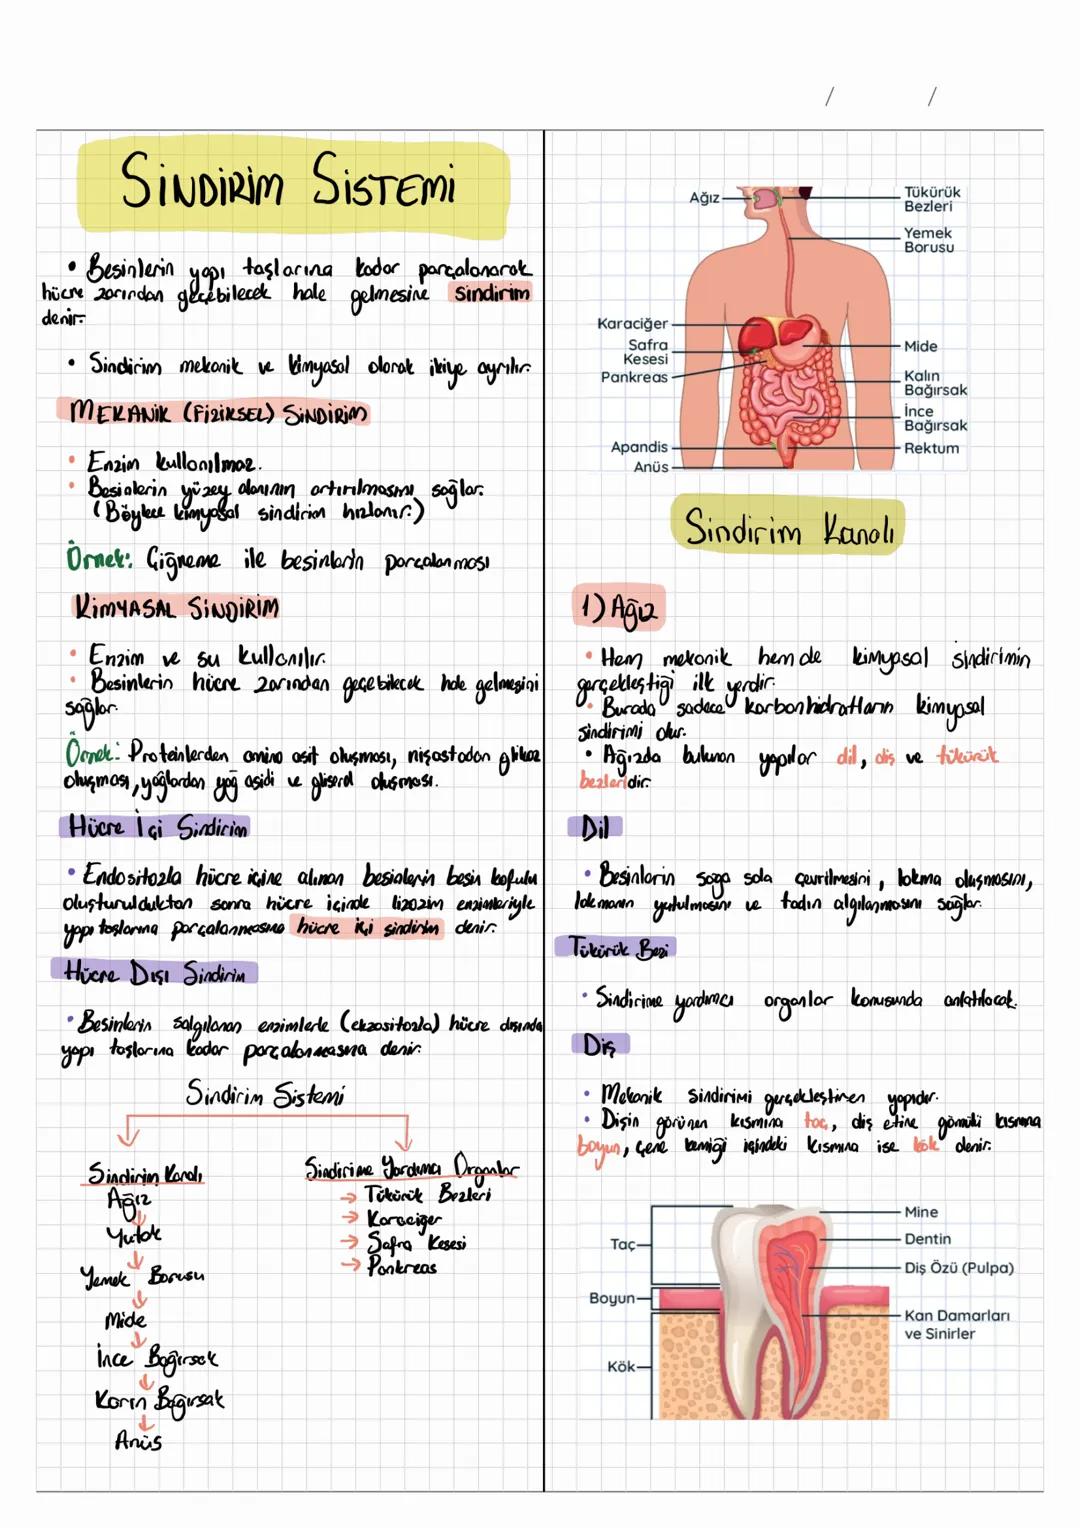 / /
SİNDİRİM SİSTEMİ
• Besinlerin yapı taşlarına kadar parçalanarak
hücre zarından geçebilecek hale gelmesine sindirim
denir.
• Sindirim mekanik ve kimyasal olarak ikiye ayrılır.
MEKANİK (FİZİKSEL) SİNDİRİM
• Enzim kullanılmaz.
• Besinlerin yüzey alanının artırılmasını sağlar.
(Böylece kimyasal sindirim hızlanır.)
Örnek: Çiğneme ile besinlerin parçalanması
KİMYASAL SİNDİRİM
• Enzim ve su kullanılır.
• Besinlerin hücre zarından geçebilecek hale gelmesini
sağlar.
Örnek: Proteinlerden amino asit oluşması, nişastadan glikoz
oluşması, yağlardan yağ asidi ve gliserol oluşması.
Hücre İçi Sindirim
• Endositozla hücre içine alınan besinlerin besin kofulu
oluşturulduktan sonra hücre içinde lizozim enzimleriyle
yapı taşlarına parçalanmasına hücre içi sindirim denir.
Hücre Dışı Sindirim
• Besinlerin salgılanan enzimlerle (ekzositozla) hücre dışında
yapı taşlarına kadar parçalanmasına denir.
Sindirim Sistemi
Sindirim Kanalı
Ağız
Yutak
Yemek Borusu
Mide
İnce Bağırsak
Karın Bağırsak
Anüs
Sindirime Yardımcı Organlar
→ Tükürük Bezleri
→ Karaciğer
→ Safra Kesesi
→ Pankreas
Ağız
Tükürük
Bezleri
Yemek
Borusu
Karaciğer
Safra
Kesesi
Pankreas
Mide
Kalın
Bağırsak
İnce
Bağırsak
Apandis
Rektum
Anüs
Sindirim Kanalı
1) Ağız
• Hem mekanik hem de kimyasal sindirimin
gerçekleştiği ilk yerdir.
• Burada sadece karbonhidratların kimyasal
sindirimi olur.
• Ağızda bulunan yapılar dil, diş ve tükürük
bezleridir.
Dil
• Besinlerin sağa sola çevrilmesini, lokma oluşmasını,
lokmanın yutulmasını ve tadın algılanmasını sağlar.
Tükürük Bezi
• Sindirime yardımcı organlar konusunda anlatılacak.
Diş
• Mekanik sindirimi gerçekleştiren yapıdır.
• Dişin görünen kısmına taç, diş etine gömülü kısmına
boyun, çene kemiği içindeki kısmına ise kök denir.
Taç
Boyun
Kök
Mine
Dentin
Diş Özü (Pulpa)
Kan Damarları
ve Sinirler